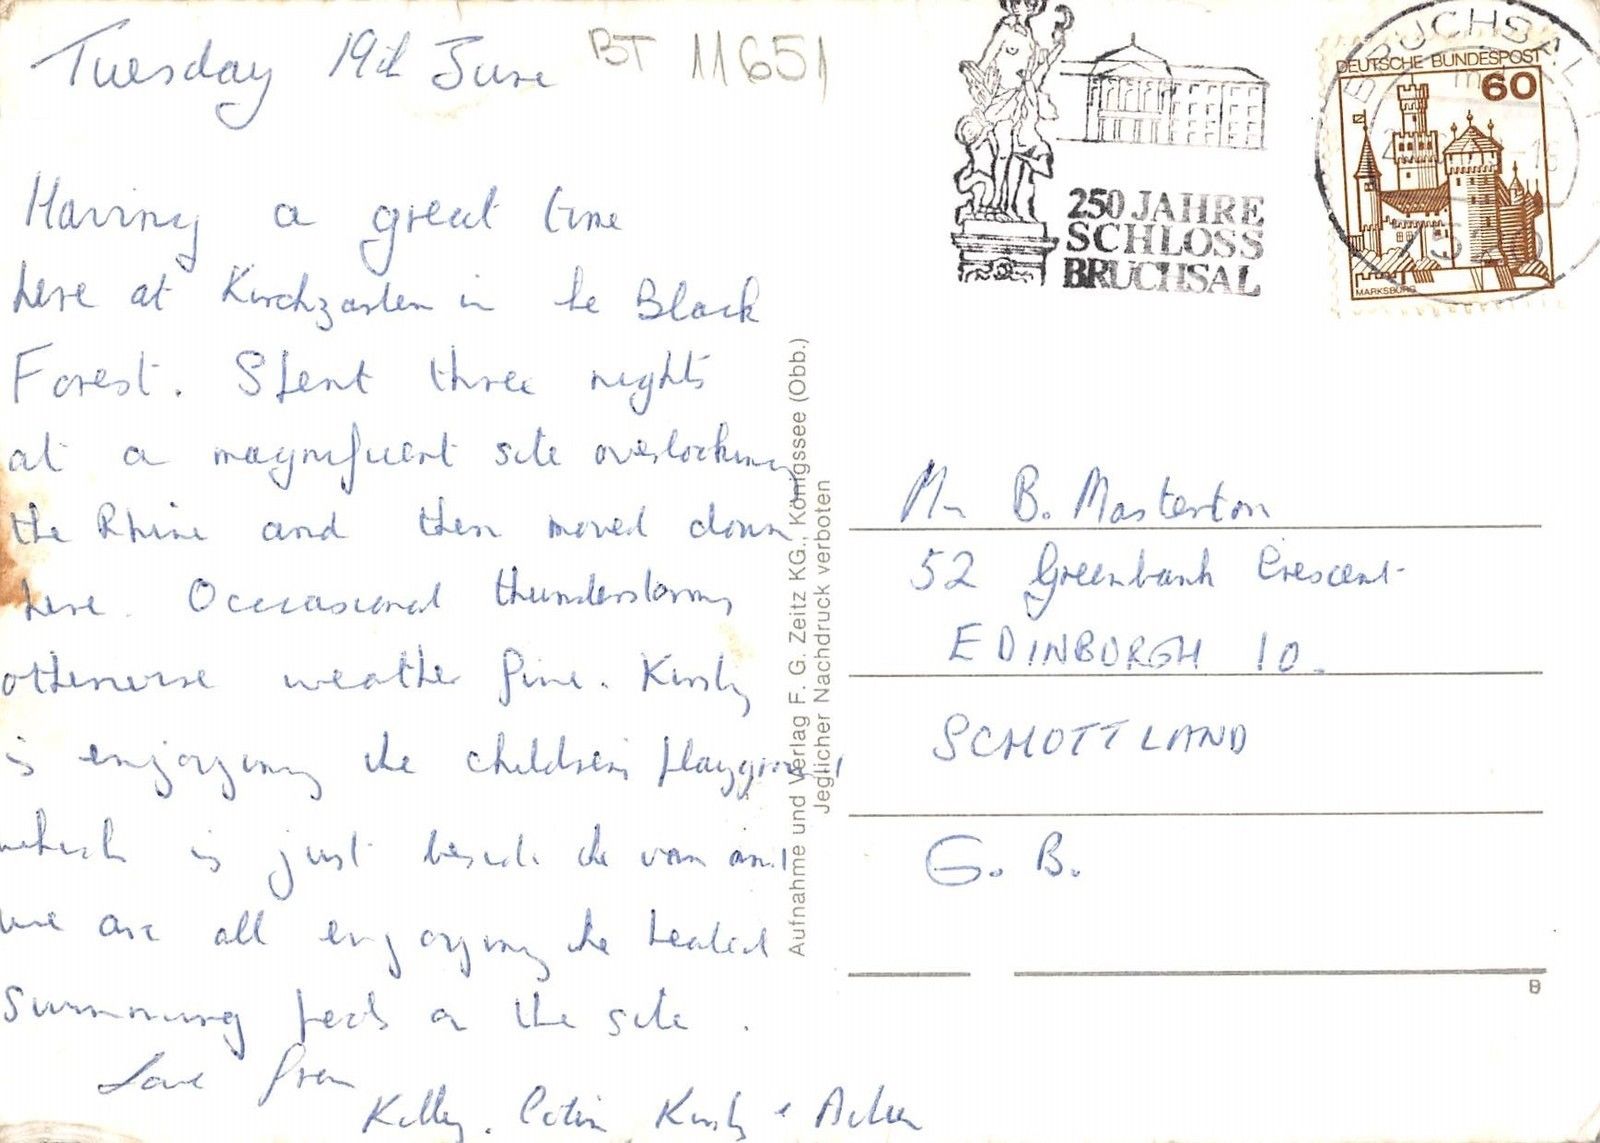 Tuesday 19th June
BT 11651
Having a great time
here at Kirchzarten in the Black
Forest. Spent three nights
at a magnificent site overlooking
the Rhine and then moved down
here. Occasional thunderstorms
otherwise weather fine. Kirsty
is enjoying the children's playground
which is just beside the van and
we are all enjoying the heated
swimming pools on the site.
Love from
Colin Kirsty &
250 JAHRE
SCHLOSS
BRUCHSAL
BRUCHSAL
DEUTSCHE BUNDESPOST
60
MARKSBURG
Aufnahme und Verlag F. G. Zeitz KG., Königssee (Obb.)
Jeglicher Nachdruck verboten
Mr B. Masterton
52 Greenbank Crescent
EDINBURGH 10.
SCHOTTLAND
G. B.
B